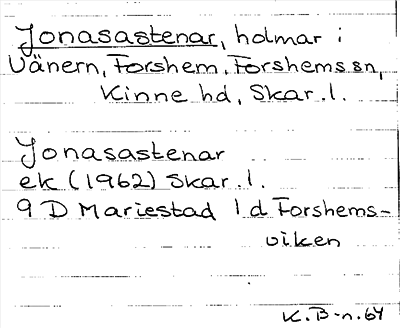 Jonasastenar, holmar i
Vänern, Forshem, Forshems sn,
Kinne hd, Skar. l.
Jonasastenar
ek (1962) Skar. l.
9 D Mariestad 1 d Forshems-
viken
K. B-n. 64